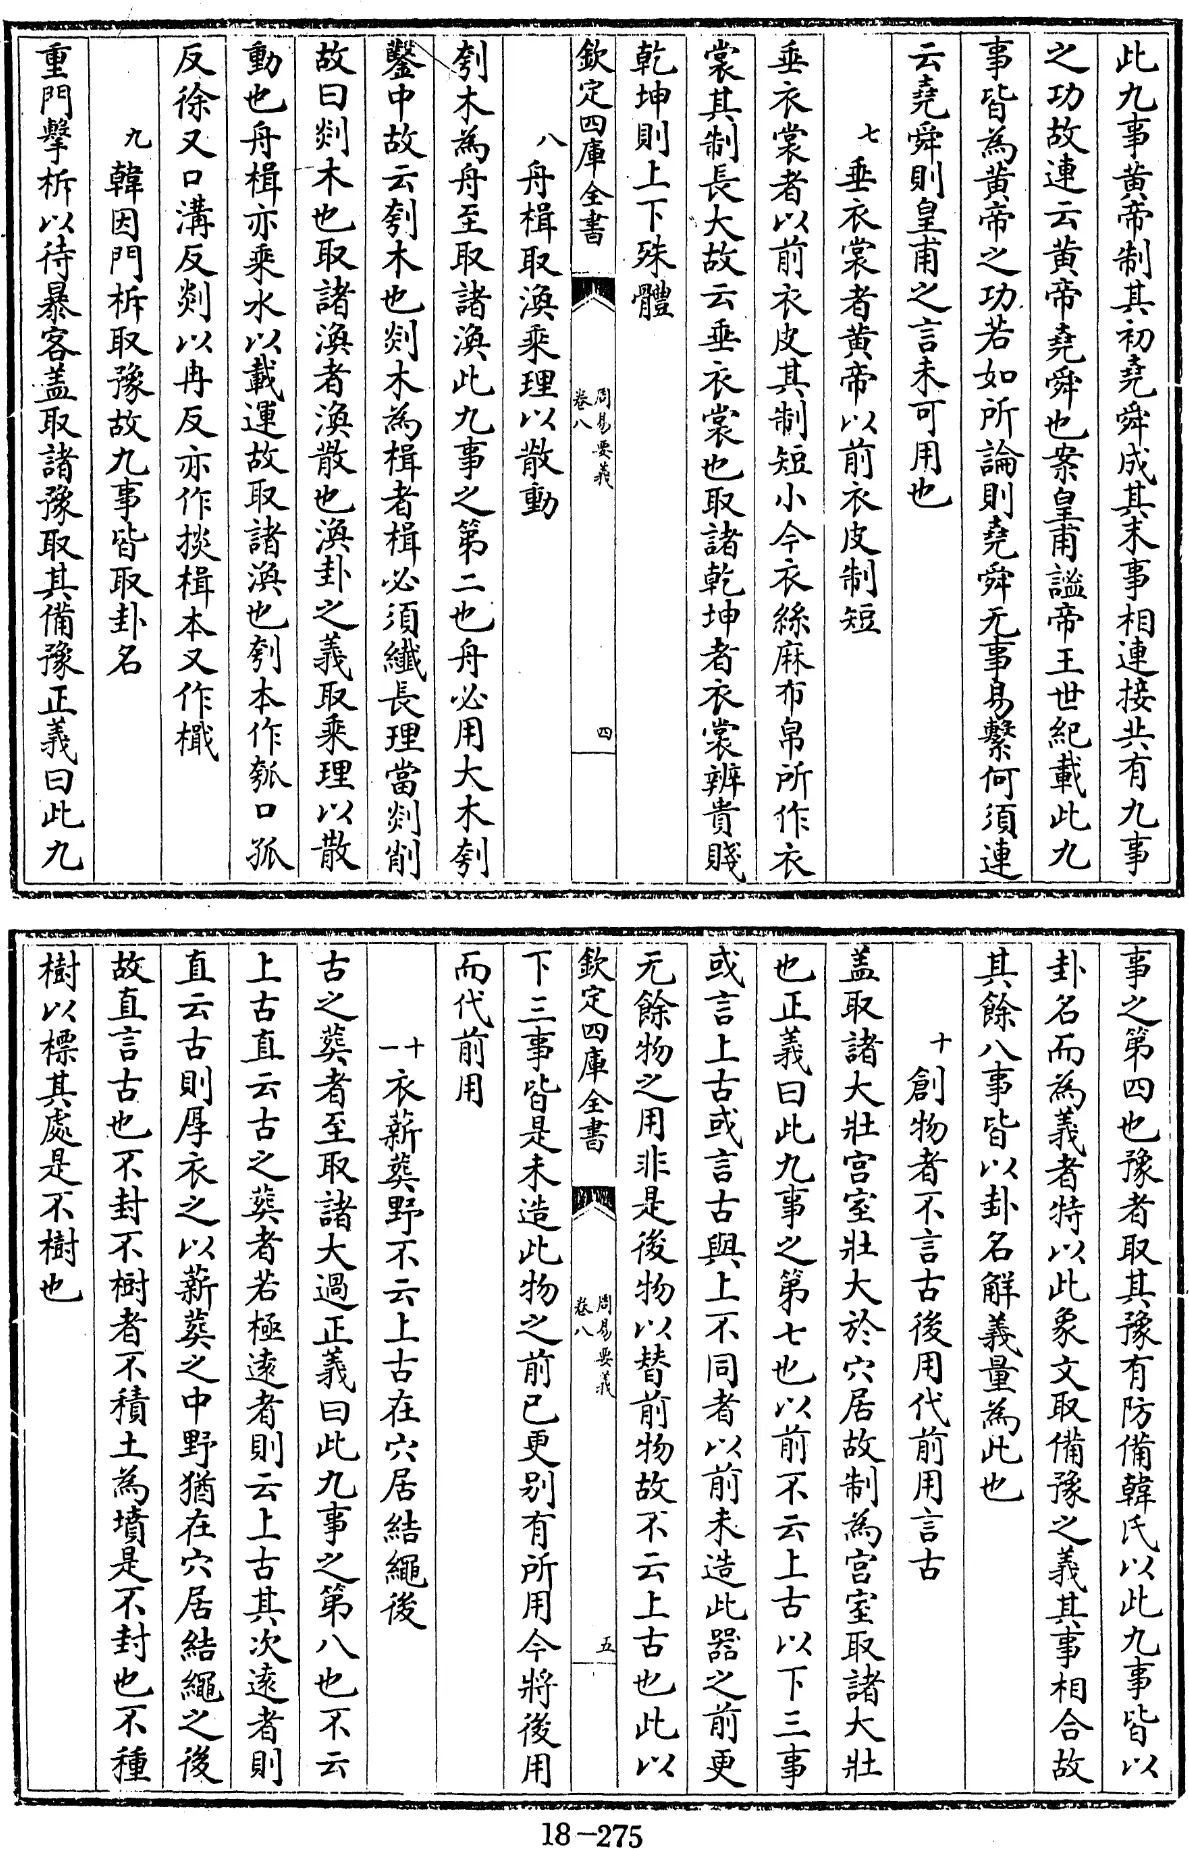 此九事黄帝制其初堯舜成其末事相連接共有九事
之功故連云黄帝堯舜也案皇甫謐帝王世紀載此九
事皆為黄帝之功若如所論則堯舜无事易繫何須連
云堯舜則皇甫之言未可用也
七垂衣裳者黄帝以前衣皮制短
垂衣裳者以前衣皮其制短小今衣絲麻布帛所作衣
裳其制長大故云垂衣裳也取諸乾坤者衣裳辨貴賤
乾坤則上下殊體
欽定四庫全書
周易要義
卷八
四
八舟楫取渙乘理以散動
刳木為舟至取諸渙此九事之第二也舟必用大木刳
鑿中故云刳木也剡木為楫者楫必須纖長理當剡削
故曰剡木也取諸渙者渙散也渙卦之義取乘理以散
動也舟楫亦乘水以載運故取諸渙也刳本作㼋口孤
反徐又口溝反剡以冉反亦作掞楫本又作檝
九韓因門柝取豫故九事皆取卦名
重門擊柝以待暴客盖取諸豫取其備豫正義曰此九
事之第四也豫者取其豫有防備韓氏以此九事皆以
卦名而為義者特以此象文取備豫之義其事相合故
其餘八事皆以卦名解義量為此也
十創物者不言古後用代前用言古
盖取諸大壯宫室壯大於穴居故制為宫室取諸大壯
也正義曰此九事之第七也以前不云上古以下三事
或言上古或言古與上不同者以前未造此器之前更
无餘物之用非是後物以替前物故不云上古也此以
欽定四庫全書
周易要義
卷八
五
下三事皆是未造此物之前已更别有所用今將後用
而代前用
十一衣薪葬野不云上古在穴居結繩後
古之葬者至取諸大過正義曰此九事之第八也不云
上古直云古之葬者若極逺者則云上古其次逺者則
直云古則厚衣之以薪葬之中野猶在穴居結繩之後
故直言古也不封不樹者不積土為墳是不封也不種
樹以標其處是不樹也
18-275